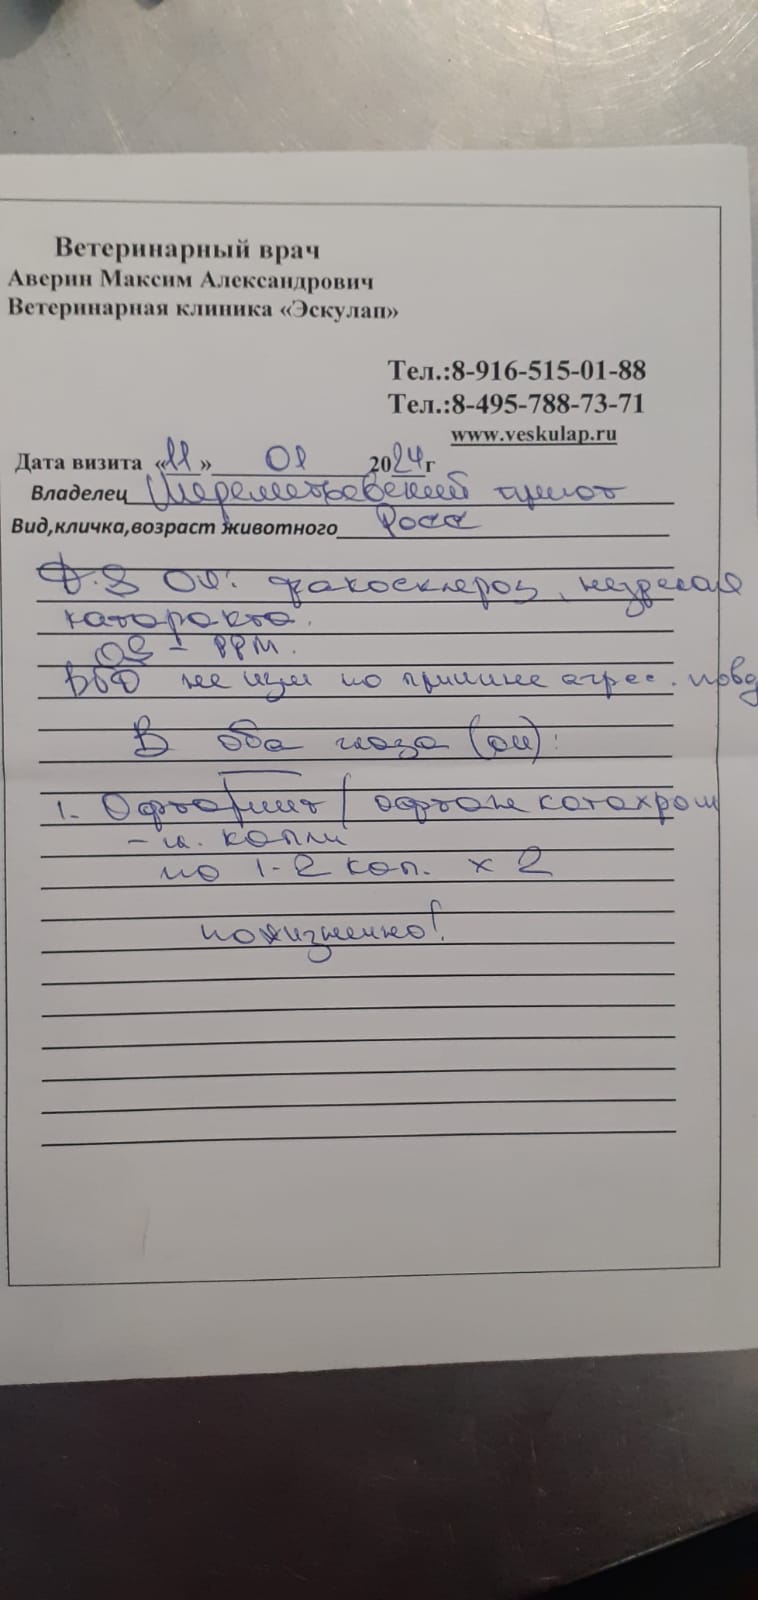 Ветеринарный врач
Аверин Максим Александрович
Ветеринарная клиника «Эскулап»
Тел.:8-916-515-01-88
Тел.:8-495-788-73-71
www.veskulap.ru
Дата визита «11» 01 2024г
Владелец Шереметьевский приют
Вид,кличка,возраст животного Роса
D.S OU: факосклероз, незрелая
катаракта.
OS - PPM.
ВГД не изм по причине агрес. повед
В оба глаза (OU):
1. офтан катахром
- гл. капли
по 1-2 кап. х 2
пожизненно!